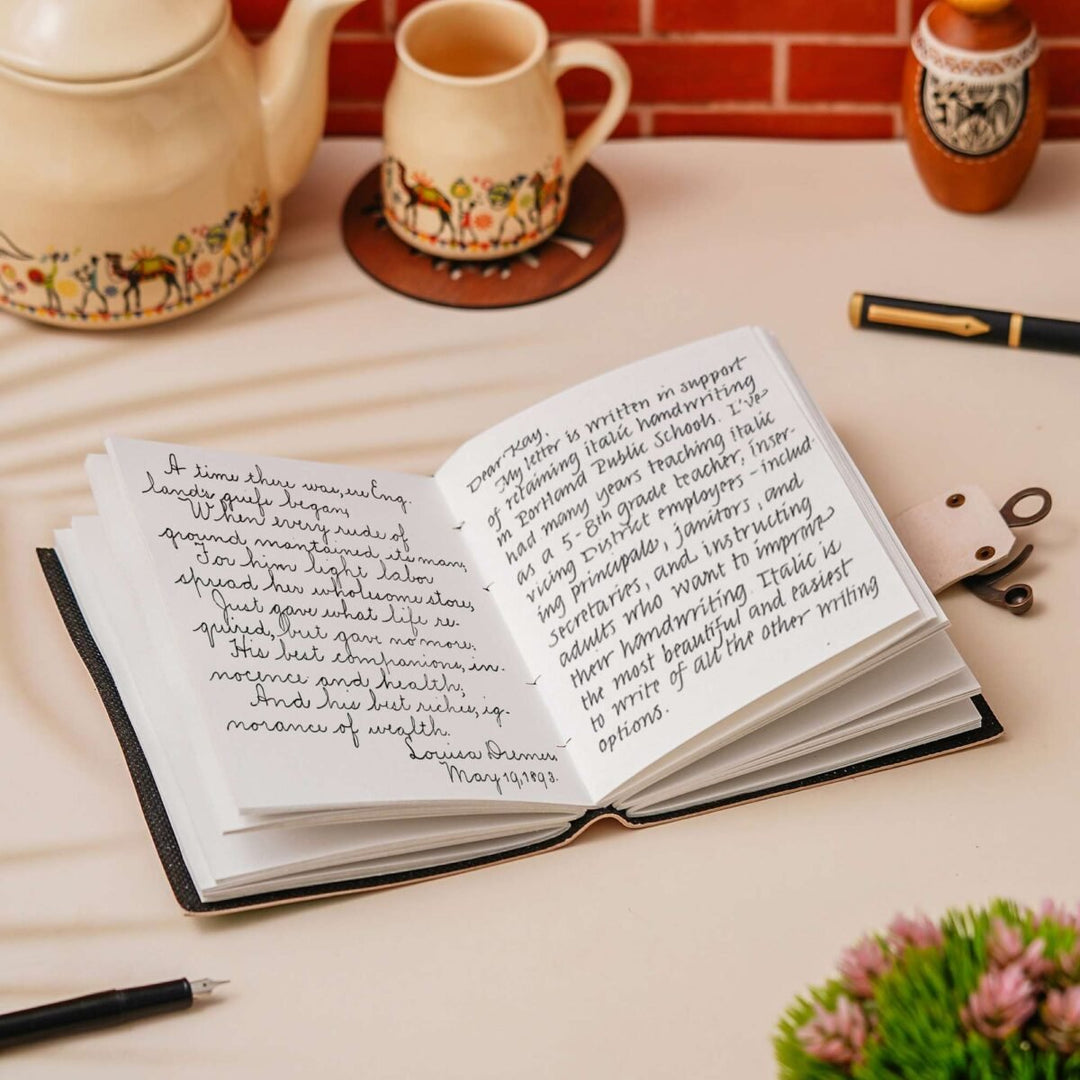 A time there was, ere Eng-
land's griefs began,
When every rude of
ground maintained its man;
For him light labor
spread her wholesome store,
Just gave what life re-
quired, but gave no more.
His best companions, in-
nocence and health;
And his best riches, ig-
norance of wealth.
Louisa Dremer,
May 19, 1893.
Dear Kay,
My letter is written in support
of retaining italic handwriting
in Portland Public Schools. I've
had many years teaching italic
as a 5-8th grade teacher, inser-
vicing District employees - includ-
ing principals, janitors, and
secretaries, and instructing
adults who want to improve
their handwriting. Italic is
the most beautiful and easiest
to write of all the other writing
options.